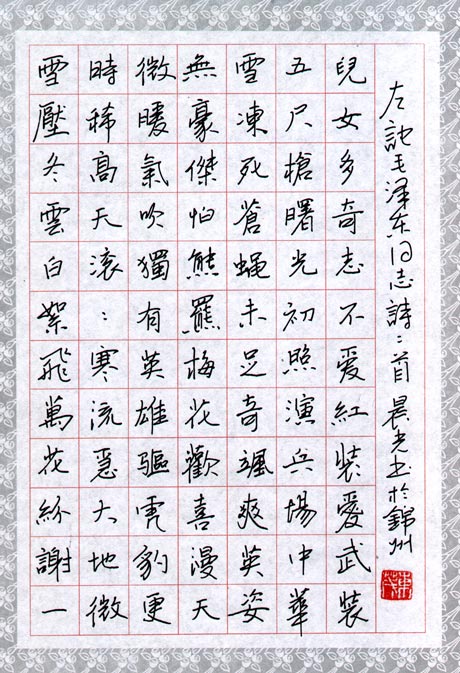 雪壓冬雲白絮飛萬花紛謝一
時稀高天滾：寒流急大地微
微暖氣吹獨有英雄驅虎豹更
無豪傑怕熊羆梅花歡喜漫天
雪凍死蒼蠅未足奇颯爽英姿
五尺槍曙光初照演兵場中華
兒女多奇志不爱紅裝愛武裝
左記毛泽东同志詩二首 晨光书於錦州